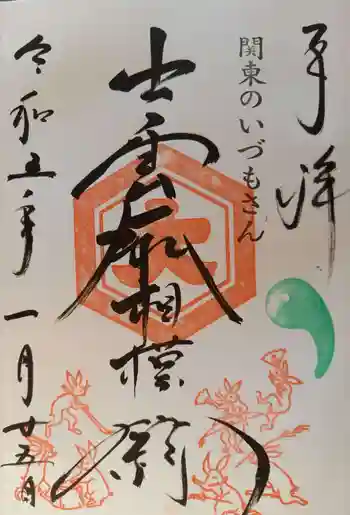 奉拝
関東のいづもさん
出雲
大
相模
令和五年 一月 廿五日